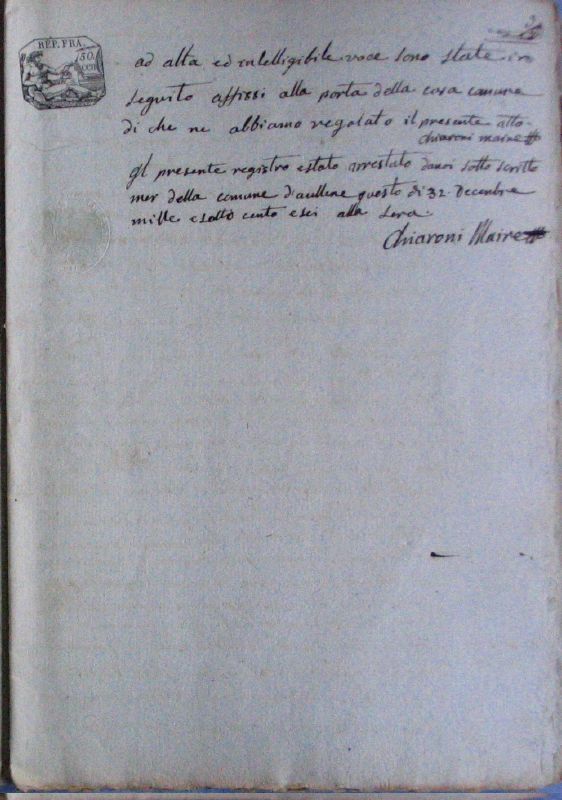 REP. FRA.
50.
CEN
ad alta ed intelligibile voce sono state in
seguito affissi alla porta della casa comune
di che ne abbiamo regolato il presente atto.
chiaroni maire
gl presente registro estato arrestato danoi sotto scritto
mer della comune d'aullene questo di 32 Decembre
mille e sotto cento e sei alla sera
Chiaroni Maire